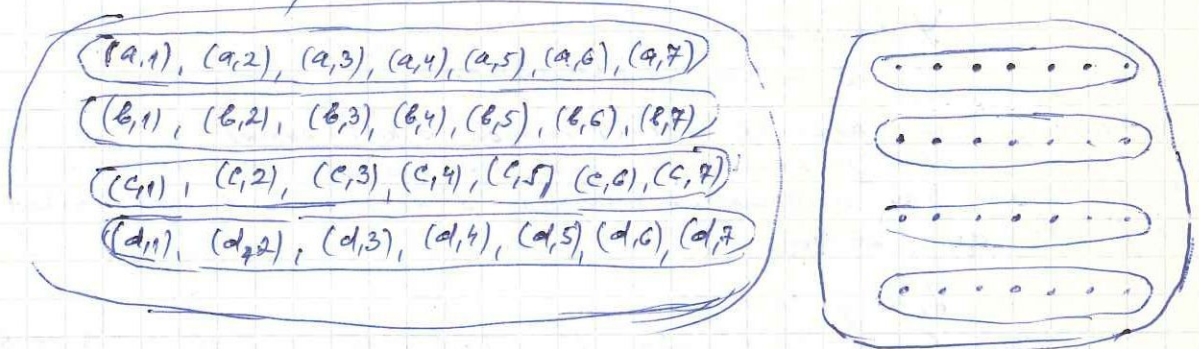 (a,1), (a,2), (a,3), (a,4), (a,5), (a,6), (a,7)
(b,1), (b,2), (b,3), (b,4), (b,5), (b,6), (b,7)
(c,1), (c,2), (c,3), (c,4), (c,5) (c,6), (c,7)
(d,1), (d,2), (d,3), (d,4), (d,5), (d,6), (d,7